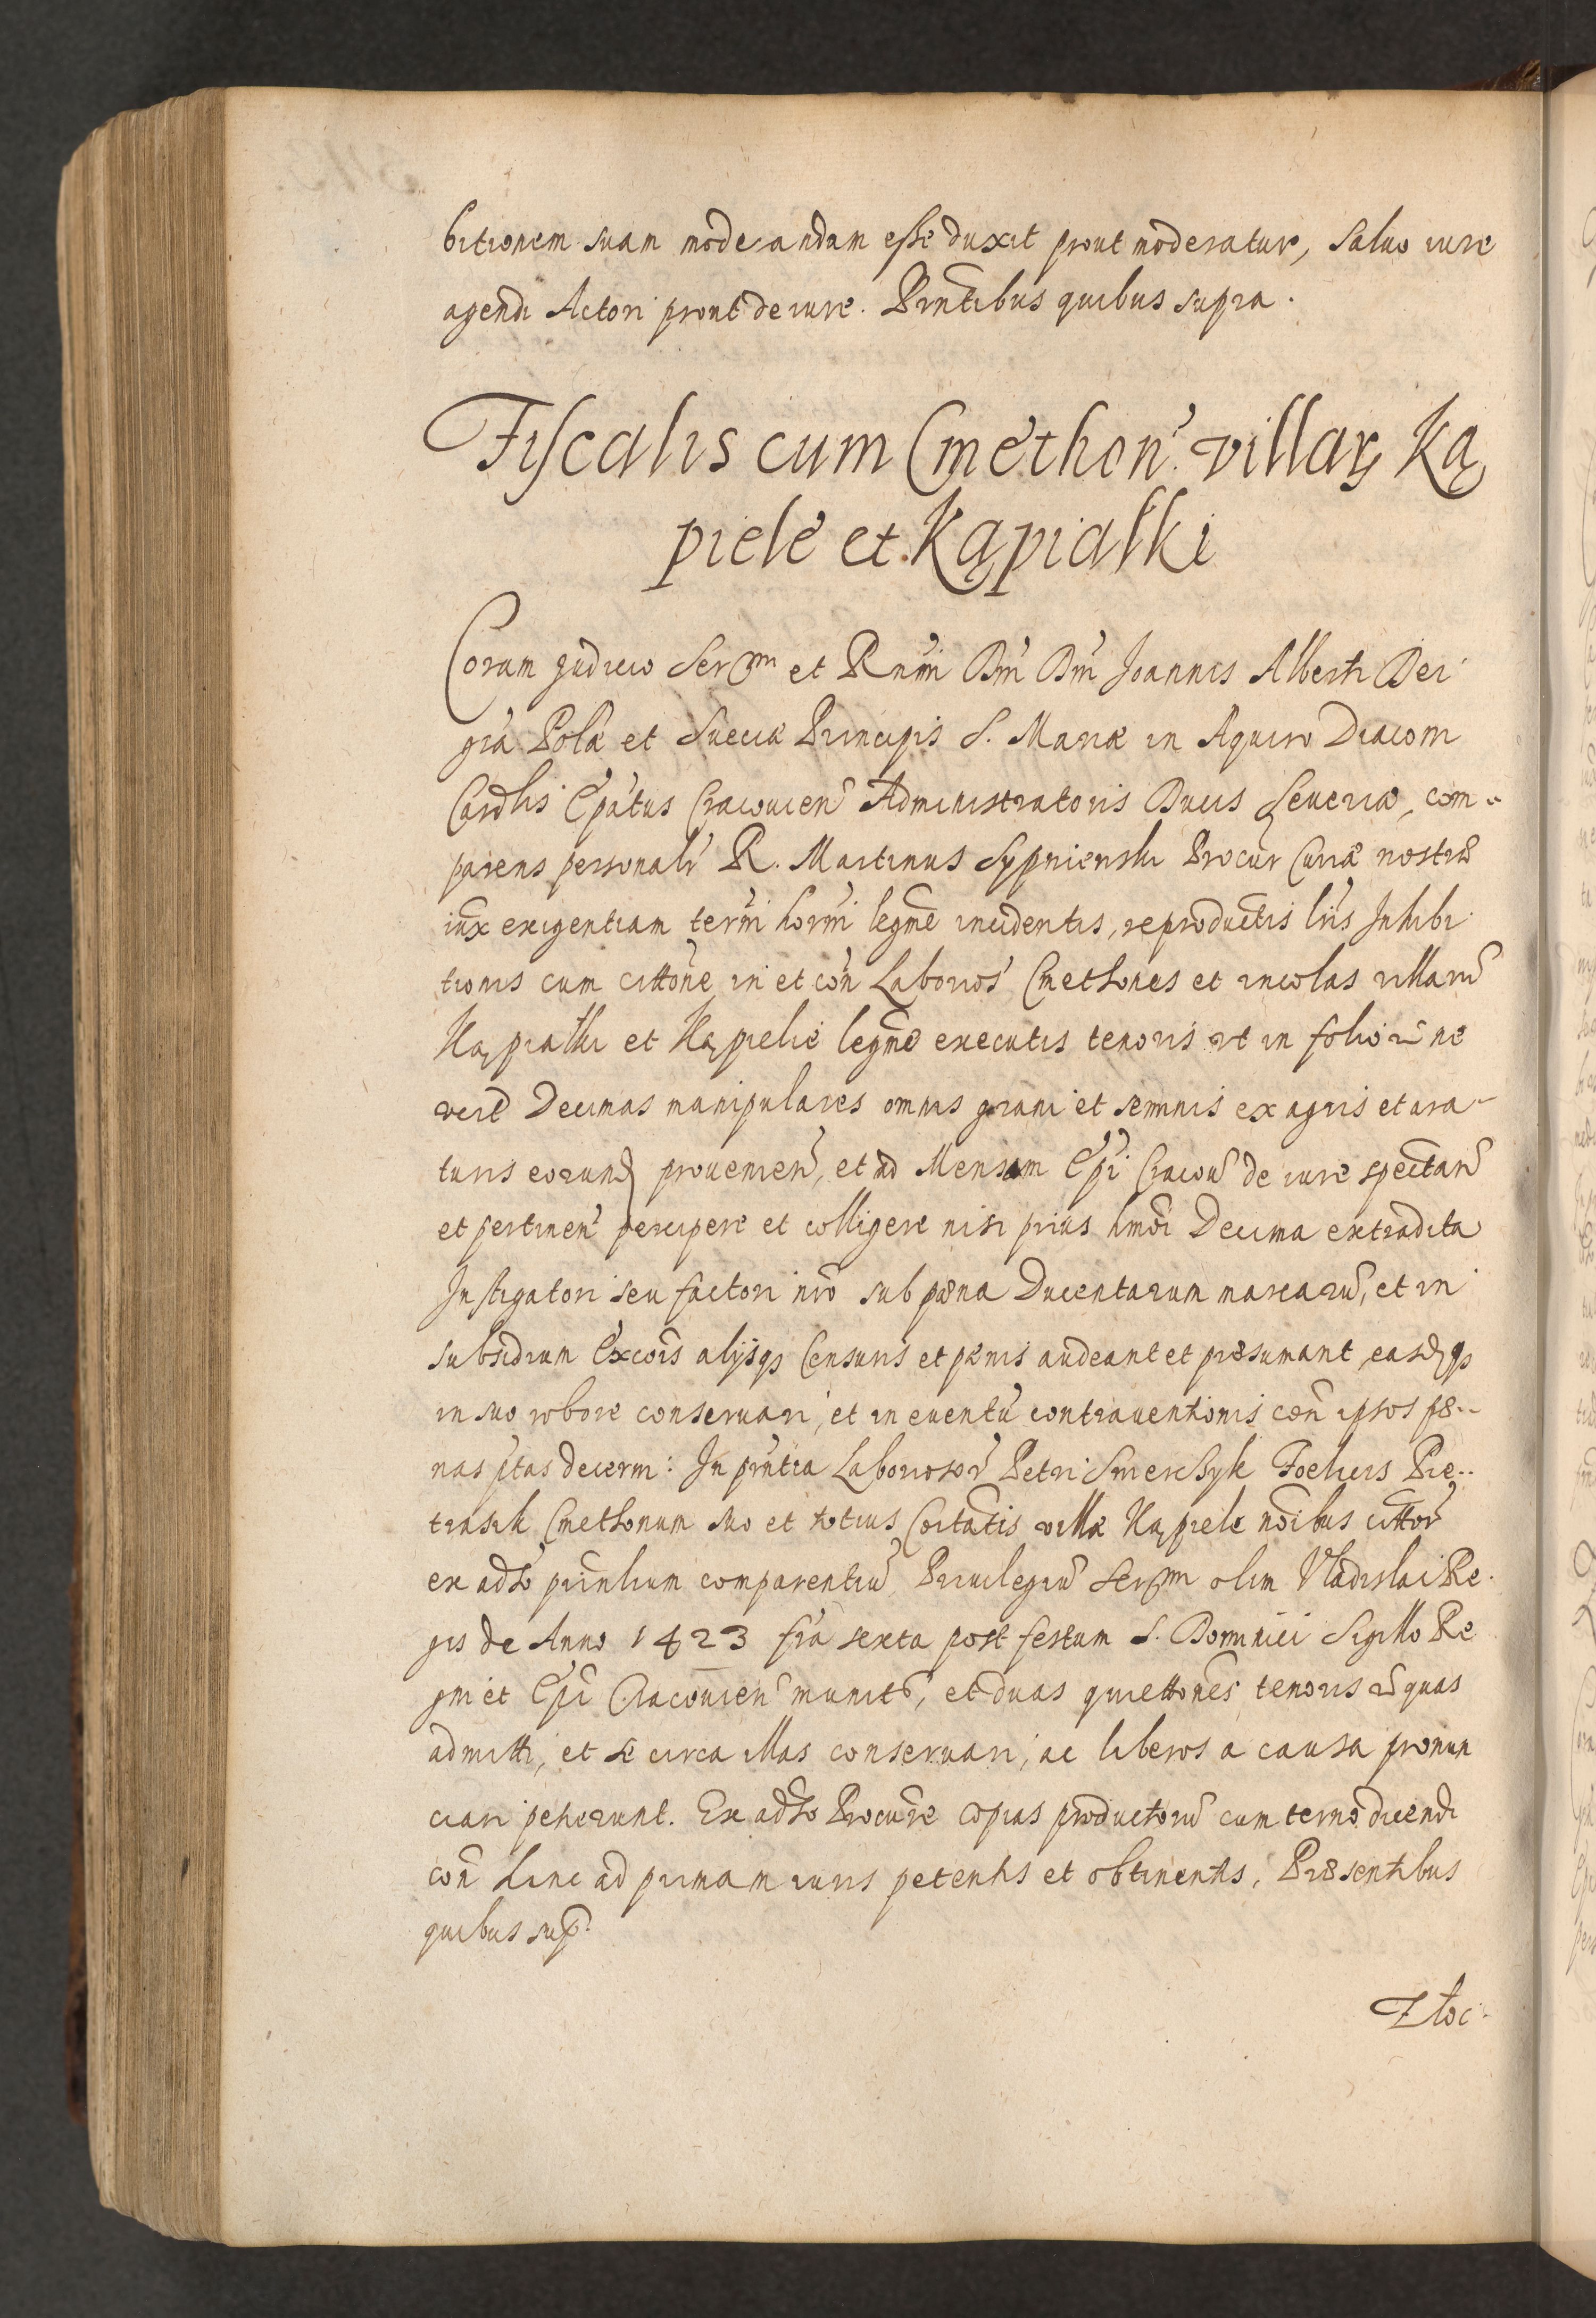 bitionem suam moderandam esse duxit prout moderatur, Saluo iure
agendi Actori prout de iure. Prntibus quibus supra.
Fiscalis cum Cmethon. villarꝫ Ką
piele et Kąpiałki
Coram Judicio Serᵐⁱ et Rnmi Dni Dni Joannis Alberti Dei
gra Polæ et Sueciæ Principis S. Mariæ in Aquiro Diaconi
Cardlis Epatus Cracouien Administratoris Ducis Seueriæ, com-
parens personalr R. Martinus Sypnienski Procur Curiæ nostræ
iux exigentiam termi hormi legme incidentis, reproductis lris Inhibi
tionis cum cittone in et con Laborios Cmethones et incolas villaru
Kąpiałki et Kąpiele legme executis tenoris vt in folio ne
vere Decimas manipulares omnis grani et seminis ex agris et ara-
turis eorund prouenien, et ad Mensam Epi Cracou de iure spectan
et pertinen percipere et colligere nisi prius hmoi Decima extradita
Instigatori seu factori nro sub pœna Ducentarum marcaru, et in
subsidium Excois alijsqꝫ Censuris et pœnis audeant et præsumant, easdqꝫ
in suo robore conseruari, et in euentu contrauentionis con ipsos pœ-
nas ptas decerni: In prntia Laboriosor Petri Smerczyk Foelicis Pie-
trasik Cmethonum suo et totius Coitatis villæ Kąpiele noibus cittor
ex adso principalium comparentiu Priuilegiu Serᵐⁱ olim Vladislai Re-
gis de Anno 1423 fria sexta post festum S. Dominici Sigillo Re
gni et Epi Cracouien munitu, et duas quiettones tenoris quas
admitti, et se circa illas conseruari, ac liberos a causa pronun
ciari petierunt. Ex adso Procure copias productoru cum termo dicendi
con hinc ad primam iuris petentis et obtinentis, Præsentibus
quibus sup.